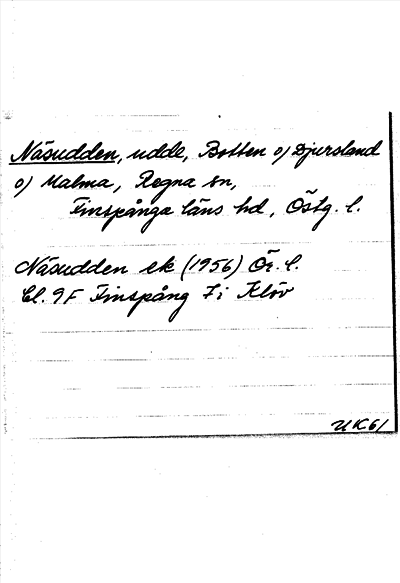 Näsudden, udde, Botten o) Djursland
o) Malma, Regna sn,
Finspånga läns hd, Östg. l.
Näsudden ek (1956) Ör. l.
Bl. 9F Finspång 7i Klöv
UK61